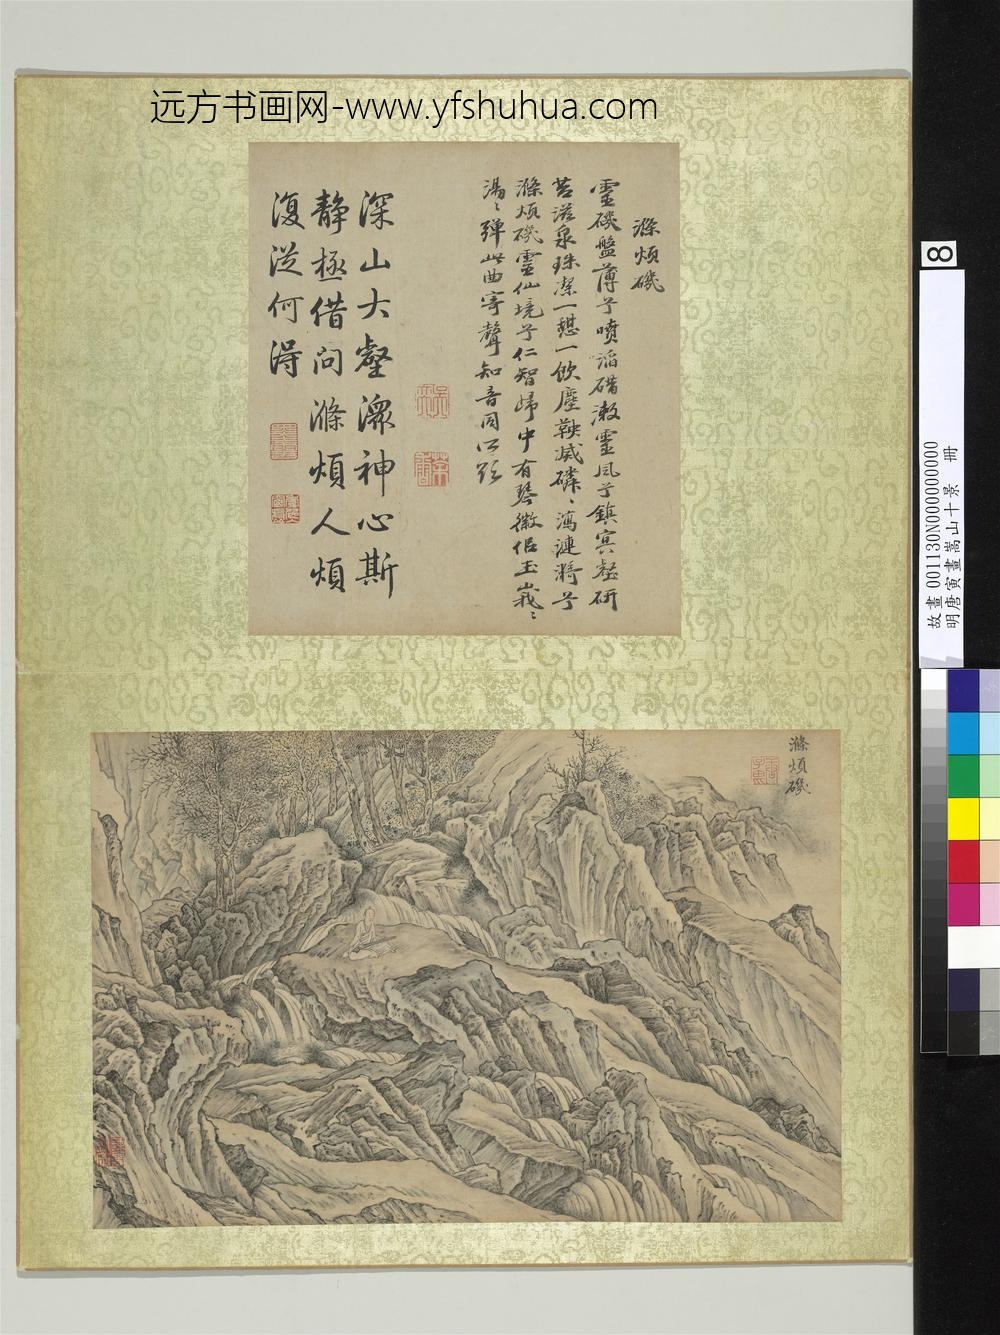 远方书画网-www.yfshuhua.com
滌煩磯
靈磯盤薄兮噴滔錯漱靈風兮鎮冥壑研
苔滋泉珠潔一憩一飲塵鞅滅磷〻漣漪兮
滌煩磯靈仙境兮仁智歸中有琴徽佀玉峩〻
湯〻彈此曲寄聲知音同所
深山大壑神心斯
静極借问滌煩人煩
復從何得
滌煩磯
8
故畫 001130N000000000
明唐寅畫嵩山十景 冊